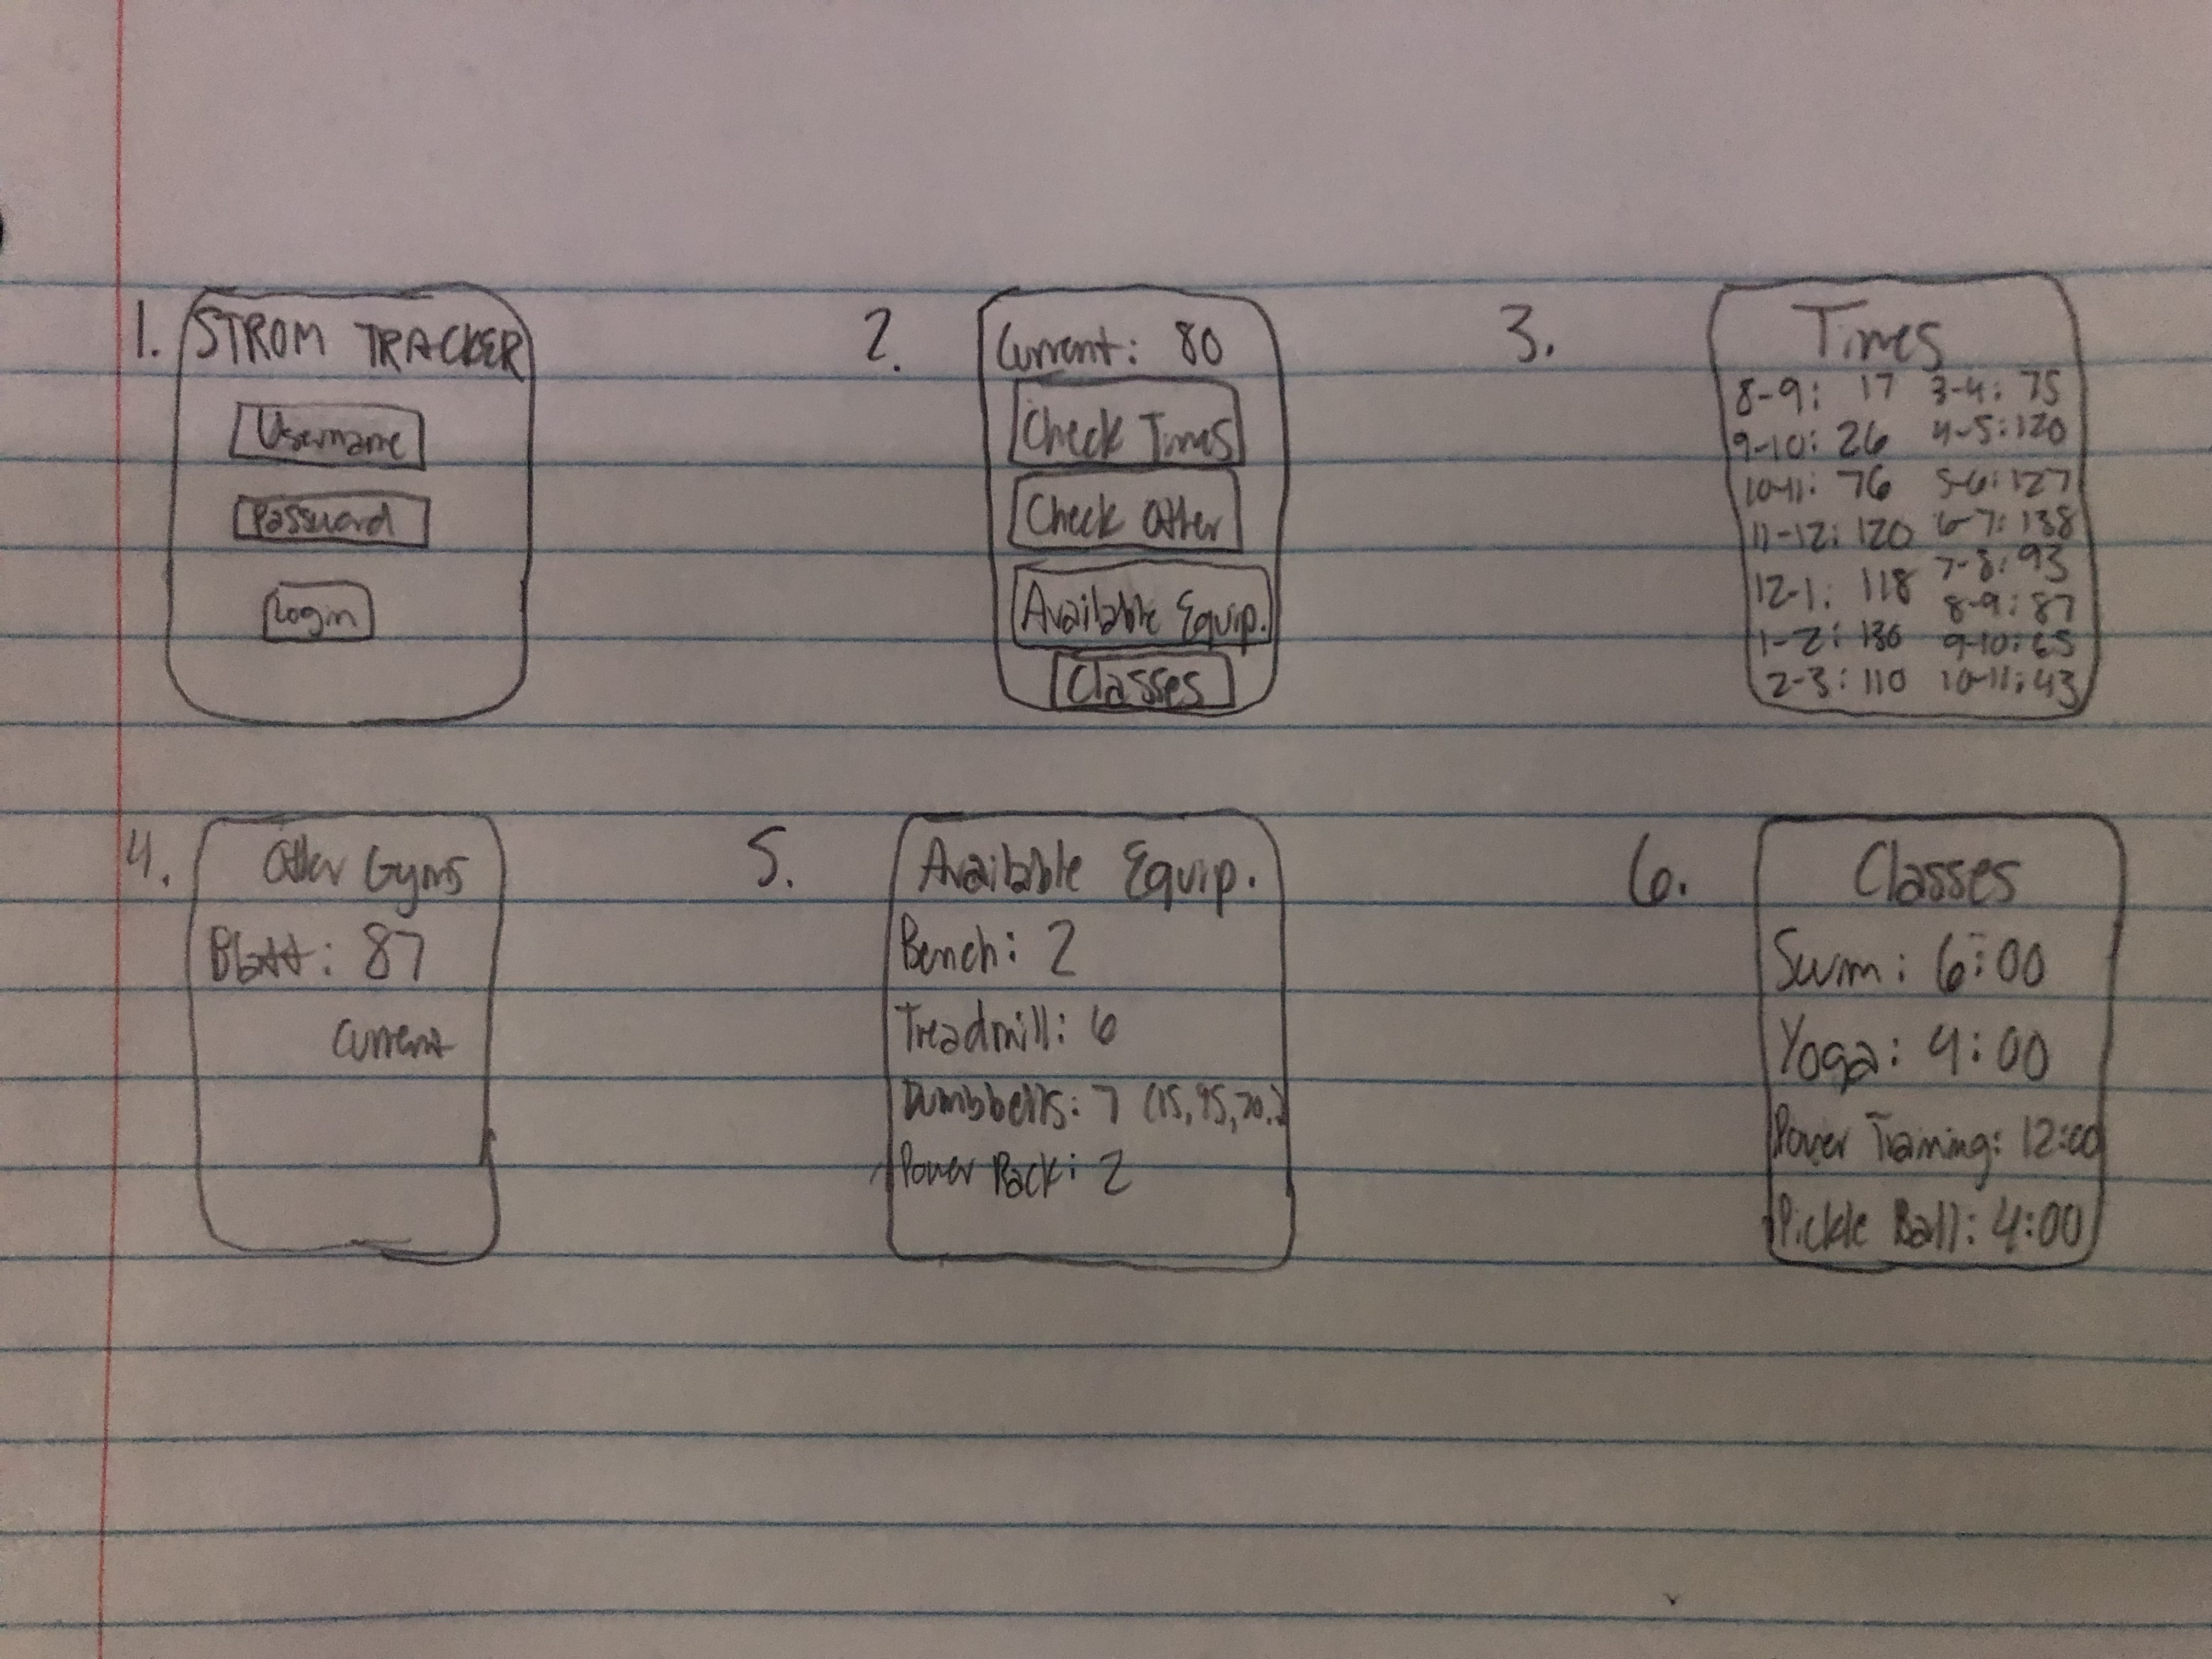 1.
STROM TRACKER
Username
Password
Login
2.
Current: 80
Check Times
Check Other
Available Equip.
Classes
3.
Times
8-9: 17 3-4: 75
9-10: 26 4-5: 120
10-11: 76 5-6: 127
11-12: 120 6-7: 138
12-1: 118 7-8: 93
1-2: 130 8-9: 87
2-3: 110 9-10: 65
10-11: 43
4.
Other Gyms
Blatt: 87
Current
5.
Available Equip.
Bench: 2
Treadmill: 6
Dumbbells: 7 (15, 95, 70.)
Power Rack: 2
6.
Classes
Swim: 6:00
Yoga: 4:00
Power Training: 12:00
Pickle Ball: 4:00